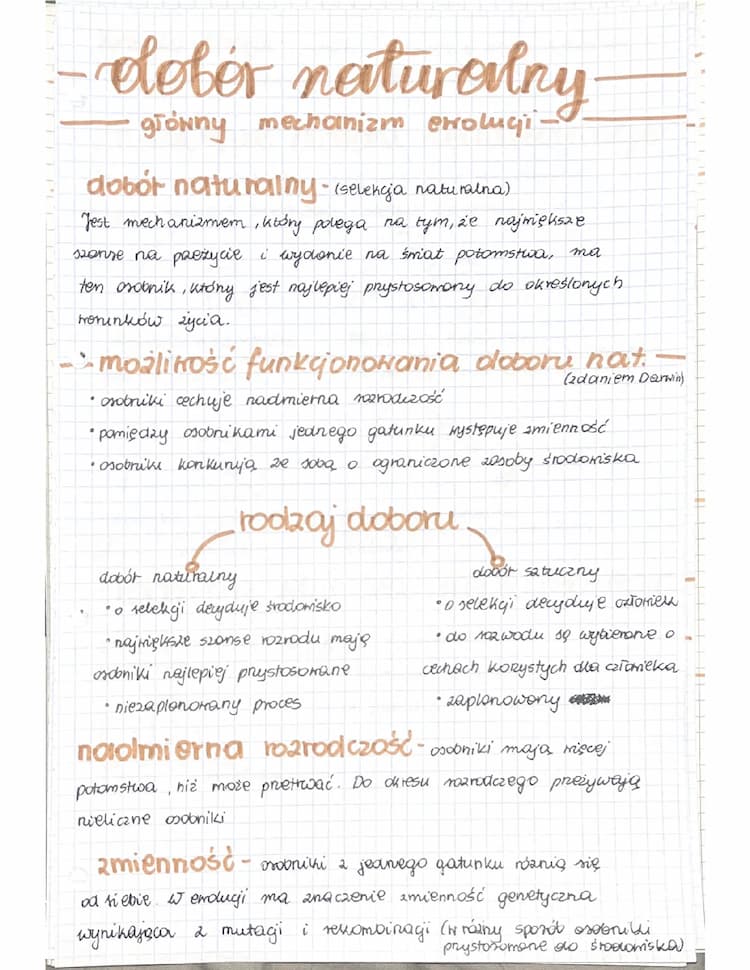 dobór naturalny
główny mechanizm ewolucji
dobór naturalny - (selekcja naturalna)
Jest mechanizmem, który polega na tym, że największe
szanse na przeżycie i wydanie na świat potomstwa, ma
ten osobnik, który jest najlepiej przystosowany do określonych
warunków życia.
możliwość funkcjonowania doboru nat.
(zdaniem Darwin)
• osobniki cechuje nadmierna rozrodczość
• pomiędzy osobnikami jednego gatunku występuje zmienność
• osobniki konkurują ze sobą o ograniczone zasoby środowiska
rodzaj doboru
dobór naturalny
• o selekcji decyduje środowisko
• największe szanse rozrodu mają
osobniki najlepiej przystosowane
• niezaplanowany proces
dobór sztuczny
• o selekcji decyduje człowiek
• do rozwodu są wybierane o
cechach korzystych dla człowieka
• zaplanowany
nadmierna rozrodczość - osobniki mają więcej
potomstwa, niż może przetrwać. Do okresu rozrodczego przeżywają
nieliczne osobniki
zmienność - osobniki z jednego gatunku różnią się
od siebie. W ewolucji ma znaczenie zmienność genetyczna
wynikająca z mutacji i rekombinacji (w różny sposób osobniki
przystosowane do środowiska)